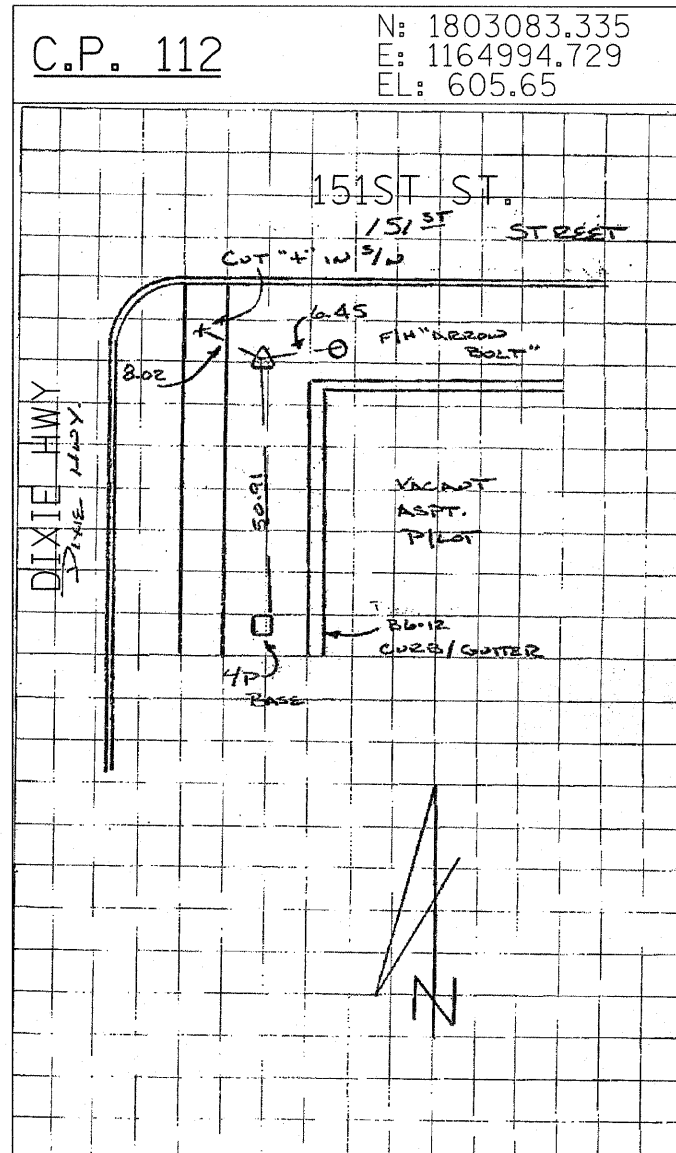 C.P. 112
N: 1803083.335
E: 1164994.729
EL: 605.65
151ST ST.
151ST STREET
CUT "+" IN S/W
6.45
F/H "ARROW
BOLT"
8.02
DIXIE HWY
DIXIE HWY.
50.91
VACANT
ASPT.
P/LOT
B6-12
CURB/GUTTER
BASE
N